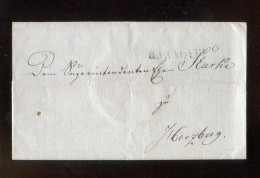 HANNOVER
Dem Superintendenten Herrn Starke
zu
Herzberg.